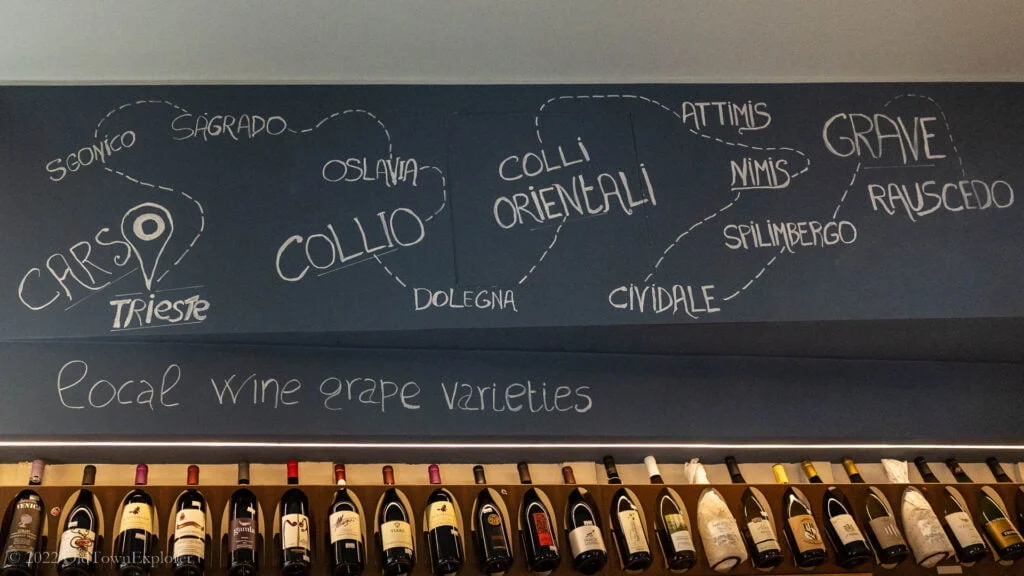 SGONICO
SAGRADO
CARSO
TRIESTE
OSLAVIA
COLLIO
DOLEGNA
COLLI
ORIENTALI
ATTIMIS
NIMIS
CIVIDALE
SPILIMBERGO
GRAVE
RAUSCEDO
local wine grape varieties
© 2022 OldTownExplorer